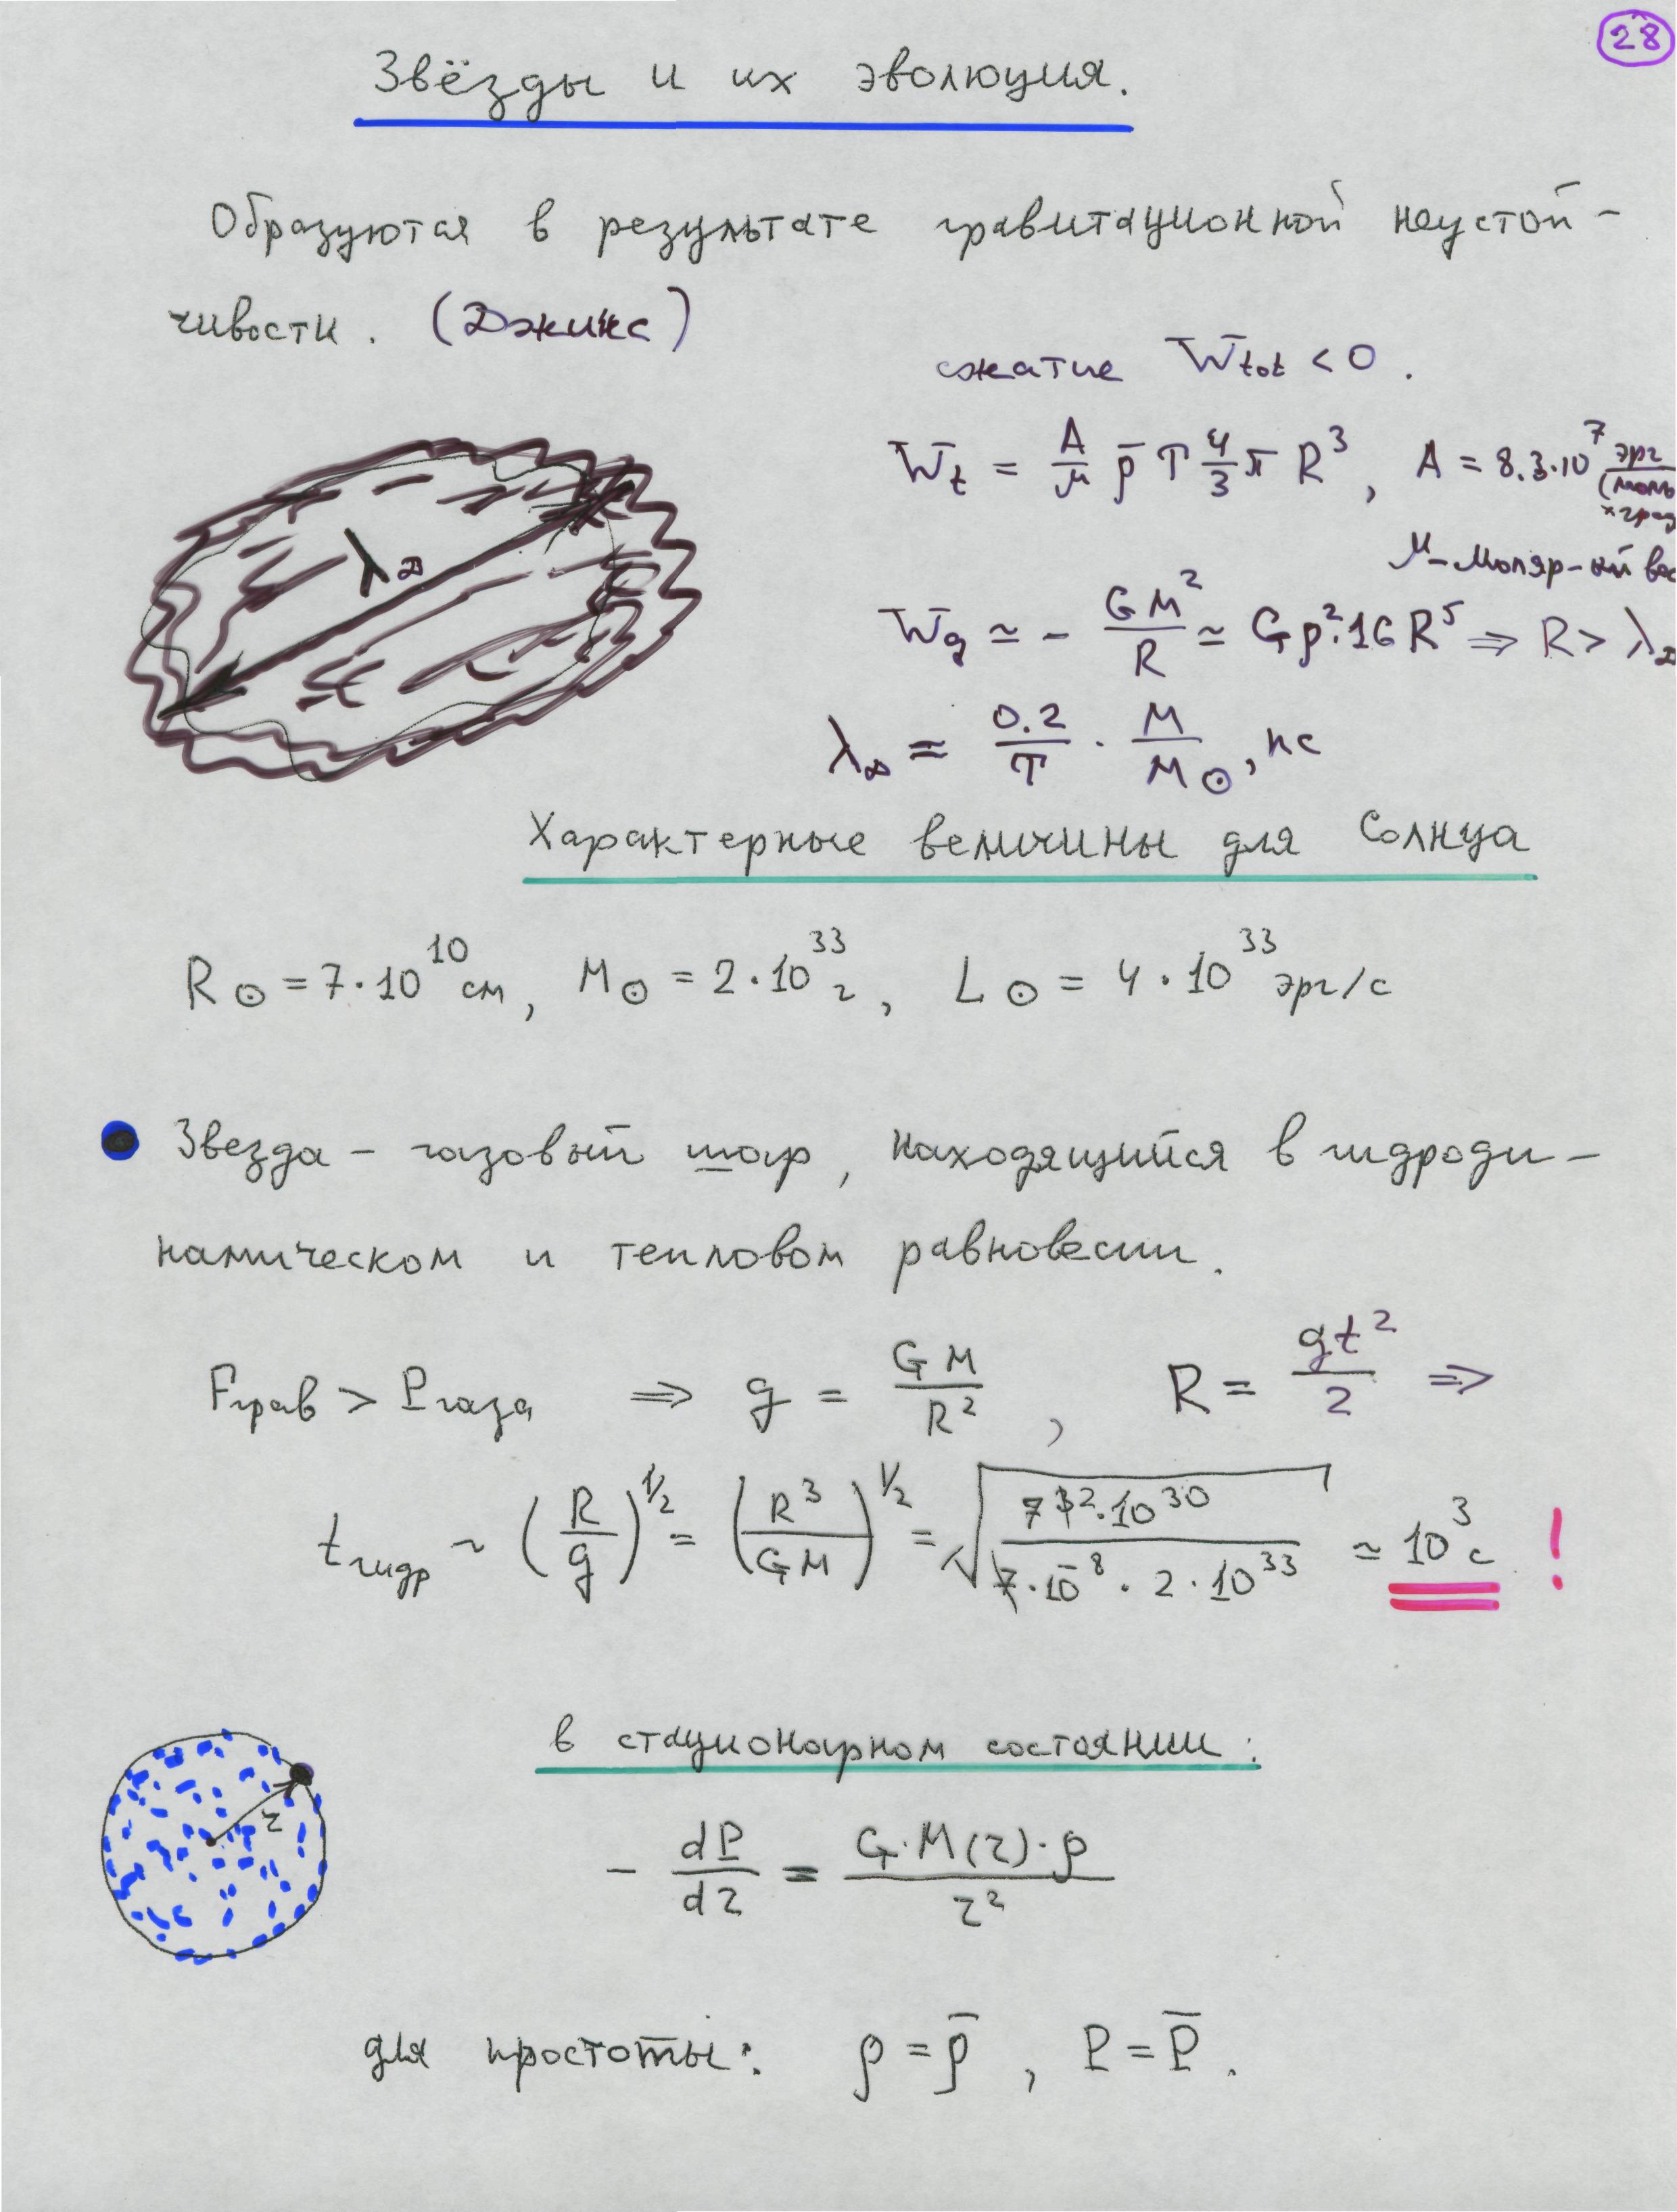 28
Звёзды и их эволюция.
Образуются в результате гравитационной неустой-
чивости. (Джинс)
сжатие W_tot < 0.
W_t = A/μ ρ̄ T 4/3 π R³, A = 8.3·10⁷ эрг/(моль × град
μ - моляр-ый вес
λ_D
W_g ≃ - GM²/R ≃ Gρ²·16R⁵ ⇒ R > λ_D
λ_D = 0.2/T · M/M⊙, пс
Характерные величины для Солнца
R⊙ = 7·10¹⁰ см, M⊙ = 2·10³³ г, L⊙ = 4·10³³ эрг/с
Звезда - газовый шар, находящийся в гидроди-
намическом и тепловом равновесии.
Fграв > Pгаза ⇒ g = GM/R², R = gt²/2 ⇒
t гидр ~ (R/g)^½ = (R³/GM)^½ = √(7³²·10³⁰ / 7·10⁻⁸·2·10³³) ≃ 10³ с !
в стационарном состоянии:
r
- dP/dr = G·M(r)·ρ/r²
для простоты: ρ = ρ̄, P = P̄.